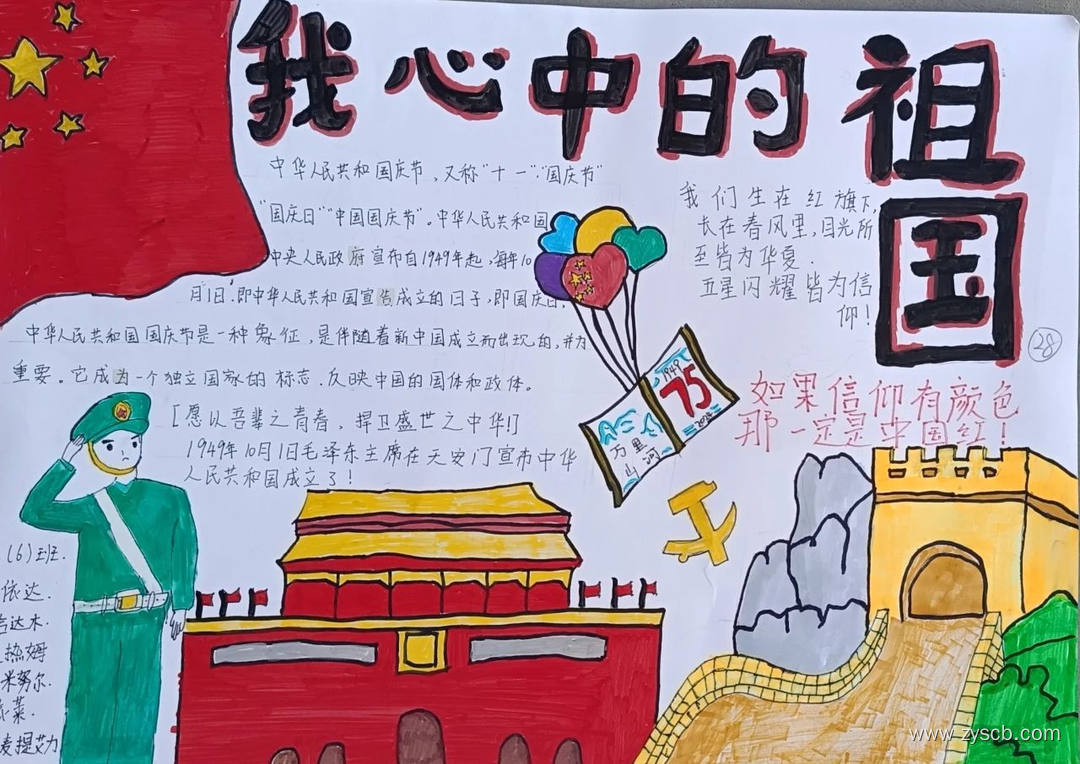 我心中的祖国
中华人民共和国国庆节,又称"十一""国庆节"
"国庆日""中国国庆节"。中华人民共和国
中央人民政府宣布自1949年起,每年10
月1日,即中华人民共和国宣告成立的日子,即国庆日.
中华人民共和国国庆节是一种象征,是伴随着新中国成立而出现的,并为
重要。它成为一个独立国家的标志.反映中国的国体和政体。
[愿以吾辈之青春,捍卫盛世之中华!]
1949年10月1日毛泽东主席在天安门宣布中华
人民共和国成立了!
我们生在红旗下,
长在春风里,目光所
至皆为华夏.
五星闪耀皆为信
仰!
28
如果信仰有颜色
那一定是中国红!
1949
75
2024
万里
山河
(6)班.
依达.
吉达木.
热姆
米努尔.
莱.
麦提艾力
www.zyscb.com